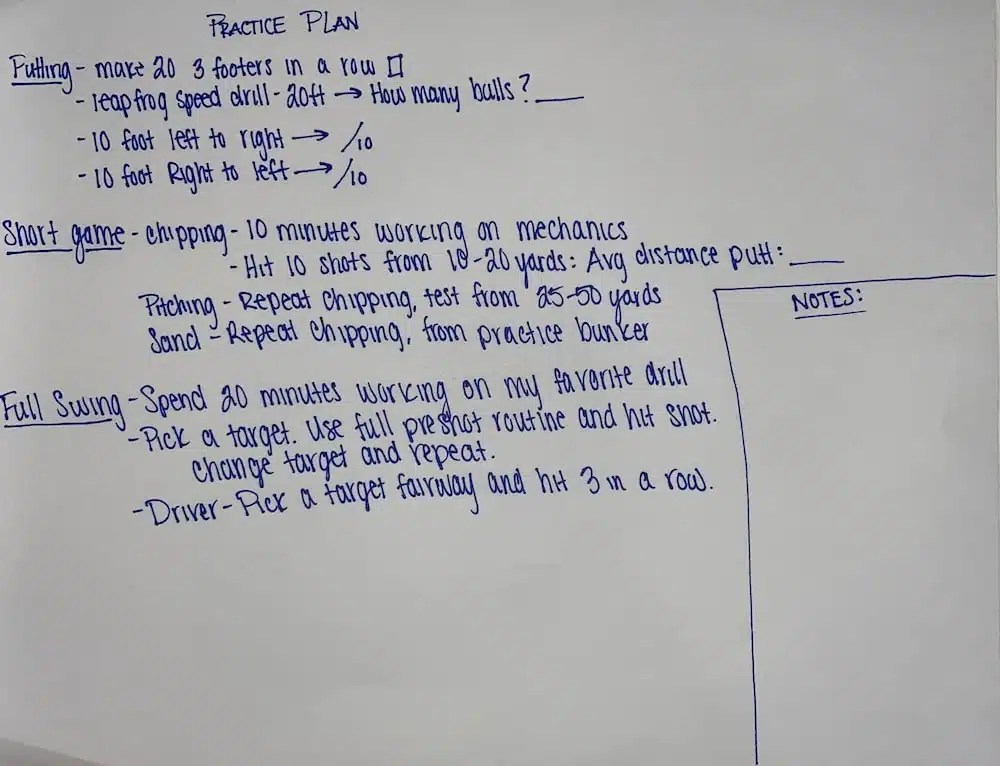 PRACTICE PLAN
Putting - make 20 3 footers in a row □
- leapfrog speed drill - 20ft → How many balls? ___
- 10 foot left to right → /10
- 10 foot Right to left → /10
Short game - chipping - 10 minutes working on mechanics
- Hit 10 shots from 10-20 yards: Avg distance putt: ___
Pitching - Repeat chipping, test from 25-50 yards
Sand - Repeat chipping, from practice bunker
NOTES:
Full Swing - Spend 20 minutes working on my favorite drill
- Pick a target. Use full preshot routine and hit shot.
change target and repeat.
- Driver - Pick a target fairway and hit 3 in a row.